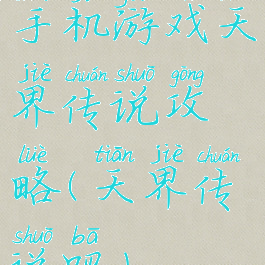 手机游戏天
jiè chuán shuō gōng
界传说攻
lüè tiān jiè chuán
略(天界传
shuō bā
说吧)